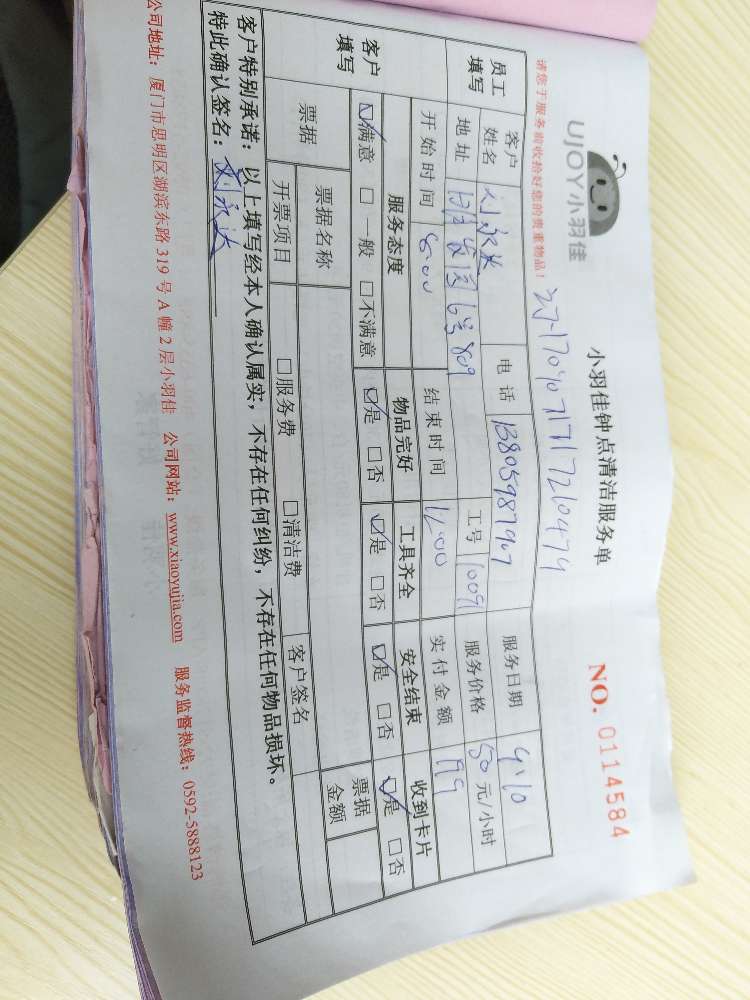 UJOY小羽佳
小羽佳钟点清洁服务单
NO. 0114584
请您于服务前收拾好您的贵重物品!
员工填写 客户姓名 电话 服务日期 4.10
地址 6号809 工号 服务价格 50 元/小时
开始时间 8:00 结束时间 12:00 实付金额
客户填写 服务态度 物品完好 工具齐全 安全结束 收到卡片
☑满意 □一般 □不满意 ☑是 □否 ☑是 □否 ☑是 □否 ☑是 □否
票据 票据名称 票据金额
开票项目 □服务费 □清洁费 客户签名
客户特别承诺:以上填写经本人确认属实,不存在任何纠纷,不存在任何物品损坏。
特此确认签名:
公司地址:厦门市思明区湖滨东路 319 号 A 幢 2 层小羽佳 公司网站:www.xiaoyujia.com 服务监督热线:0592-5888123